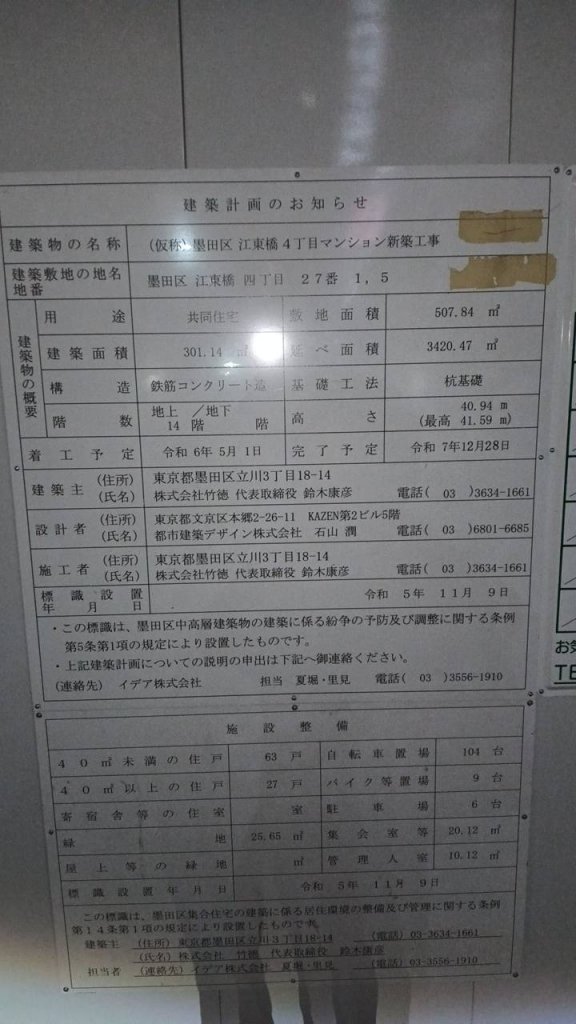 建築計画のお知らせ
建築物の名称 (仮称)墨田区 江東橋4丁目マンション新築工事
建築敷地の地名地番 墨田区 江東橋 四丁目 27番 1,5
建築物の概要
用途 共同住宅 敷地面積 507.84 ㎡
建築面積 301.14 ㎡ 延べ面積 3420.47 ㎡
構造 鉄筋コンクリート造 基礎工法 杭基礎
階数 地上 14階 /地下 階 高さ 40.94 m (最高 41.59 m)
着工予定 令和 6年 5月 1日 完了予定 令和 7年12月28日
建築主 (住所) 東京都墨田区立川3丁目18-14
(氏名) 株式会社竹徳 代表取締役 鈴木康彦 電話( 03 )3634-1661
設計者 (住所) 東京都文京区本郷2-26-11 KAZEN第2ビル5階
(氏名) 都市建築デザイン株式会社 石山 潤 電話( 03 )6801-6685
施工者 (住所) 東京都墨田区立川3丁目18-14
(氏名) 株式会社竹徳 代表取締役 鈴木康彦 電話( 03 )3634-1661
標識設置年月日 令和 5年 11月 9日
・この標識は、墨田区中高層建築物の建築に係る紛争の予防及び調整に関する条例
第5条第1項の規定により設置したものです。
・上記建築計画についての説明の申出は下記へ御連絡ください。
(連絡先) イデア株式会社 担当 夏堀・里見 電話( 03 )3556-1910
施設整備
40㎡未満の住戸 63 戸 自転車置場 104 台
40㎡以上の住戸 27 戸 バイク等置場 9 台
寄宿舎等の住室 室 駐車場 6 台
緑地 25.65 ㎡ 集会室等 20.12 ㎡
屋上等の緑地 ㎡ 管理人室 10.12 ㎡
標識設置年月日 令和 5年 11月 9日
この標識は、墨田区集合住宅の建築に係る居住環境の整備及び管理に関する条例
第14条第1項の規定により設置したものです。
建築主 (住所) 東京都墨田区立川3丁目18-14 (電話) 03-3634-1661
(氏名) 株式会社 竹徳 代表取締役 鈴木康彦
担当者 (連絡先) イデア株式会社 夏堀・里見 (電話) 03-3556-1910
お気
TE